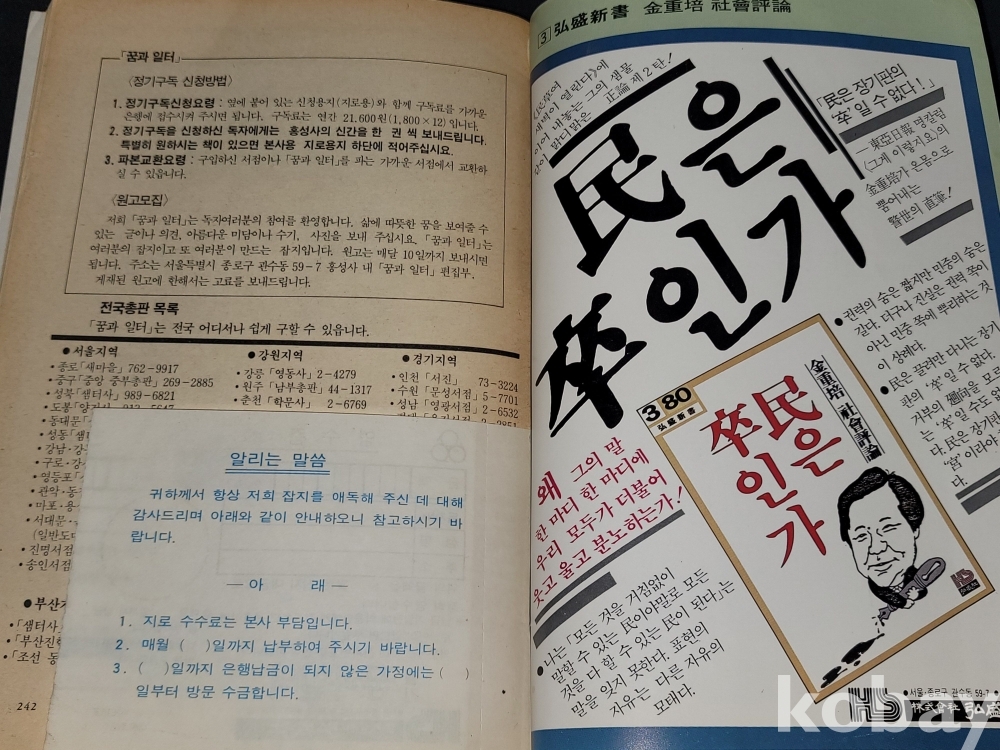 「꿈과 일터」
〈정기구독 신청방법〉
1. 정기구독신청요령 : 옆에 붙어 있는 신청용지(지로용)와 함께 구독료를 가까운
은행에 접수시켜 주시면 됩니다. 구독료는 연간 21,600원(1,800×12)입니다.
2. 정기구독을 신청하신 독자에게는 홍성사의 신간을 한 권 씩 보내드립니다.
특별히 원하시는 책이 있으면 본사용 지로용지 하단에 적어주십시요.
3. 파본교환요령 : 구입하신 서점이나 「꿈과 일터」를 파는 가까운 서점에서 교환하
실 수 있읍니다.
〈원고모집〉
저희 「꿈과 일터」는 독자여러분의 참여를 환영합니다. 삶에 따뜻한 꿈을 보여줄 수
있는 글이나 의견, 아름다운 미담이나 수기, 사진을 보내 주십시요. 「꿈과 일터」는
여러분의 잡지이고 또 여러분이 만드는 잡지입니다. 원고는 매달 10일까지 보내시면
됩니다. 주소는 서울특별시 종로구 관수동 59-7 홍성사 내 「꿈과 일터」 편집부.
게재된 원고에 한해서는 고료를 보내드립니다.
전국총판 목록
「꿈과 일터」는 전국 어디서나 쉽게 구할 수 있읍니다.
● 서울지역
• 종로「새마을」 762-9917
• 중구「중앙 중부총판」 269-2885
• 성북「샘터사」 989-6821
• 도봉
• 동대문「
• 성동「샘
• 강남·강
• 구로·강
• 영등포「
• 관악·동
• 마포·용
• 서대문·
(일반도
• 진명서점
• 송인서점
● 부산지
• 「샘터사」
• 「부산진
• 「조선 동
● 강원지역
• 강릉「영동사」 2-4279
• 원주「남부총판」 44-1317
• 춘천「학문사」 2-6769
● 경기지역
• 인천「서진」 73-3224
• 수원「문성서점」 5-7701
• 성남「영광서점」 2-6532
알리는 말씀
귀하께서 항상 저희 잡지를 애독해 주신 데 대해
감사드리며 아래와 같이 안내하오니 참고하시기 바
랍니다.
— 아 래 —
1. 지로 수수료는 본사 부담입니다.
2. 매월 ( )일까지 납부하여 주시기 바랍니다.
3. ( )일까지 은행납금이 되지 않은 가정에는 ( )
일부터 방문 수금합니다.
242
3 弘盛新書 金重培 社會評論
새벽이 열린다》에
이어 내놓는 그의 샘물
같이 맑디맑은 正論 제2탄!
民은
卒인가
「民은 장기판의
'卒'일 수 없다!」
— 東亞日報 명칼럼
〈그게 이렇지요〉의
金重培가 온몸으로
뿜어내는
警世의 直筆!
● 권력의 숨은 짧지만 민중의 숨은
길다. 더구나 진실은 권력 쪽이
아닌 민중 쪽에 뿌리하는 것
이 상례다.
● 民은 끌려만 다니는 장기
'卒'일 수 없다.
는 '卒'일 수도
다. 民은 장기판
'宮'이라야
다.
왜 그의 말
한 마디 한 마디에
우리 모두가 더불어
웃고 울고 분노하는가!
380
弘盛新書
金重培 社會評論
民은
卒인가
HS
● 나는 「모든 것을 거침없이
말할 수 있는 民이야말로 모든
것을 다 할 수 있는 民이 된다」는
말을 잊지 못한다. 표현의
자유는 다른 자유의
모태다.
● 서울·종로구 관수동 59-7
HS 株式會社 弘盛
kobay